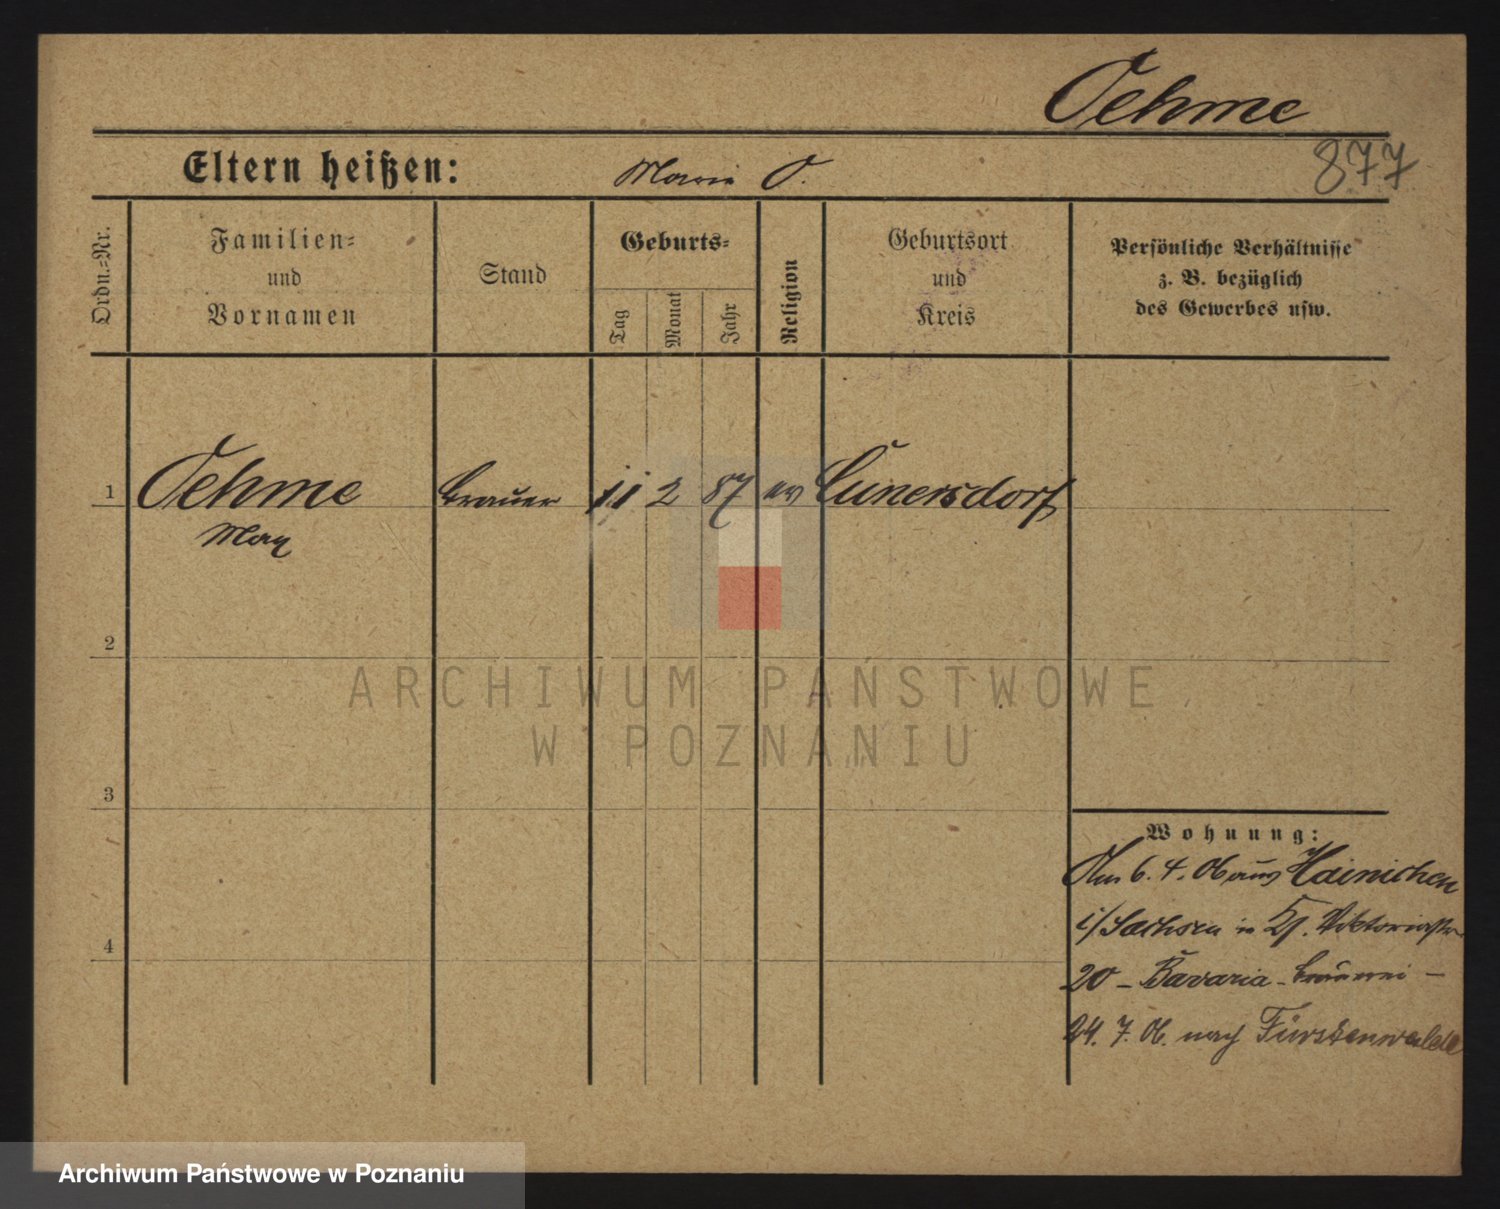 Oehme
Eltern heißen: Marie O.
877
Ordn.-Nr.
Familien-
und
Vornamen
Stand
Geburts-
Tag
Monat
Jahr
Religion
Geburtsort
und
Kreis
Persönliche Verhältnisse
z. B. bezüglich
des Gewerbes usw.
1 Oehme Brauer 11 2 87 ev Cunersdorf
Max
2
3
4
Wohnung:
Am 6. 4. 06 aus Hainichen
i/Sachsen in Viktoriastr.
20 – Bavaria-Brauerei –
24. 7. 06. nach Fürstenwalde
ARCHIWUM PAŃSTWOWE
W POZNANIU
Archiwum Państwowe w Poznaniu